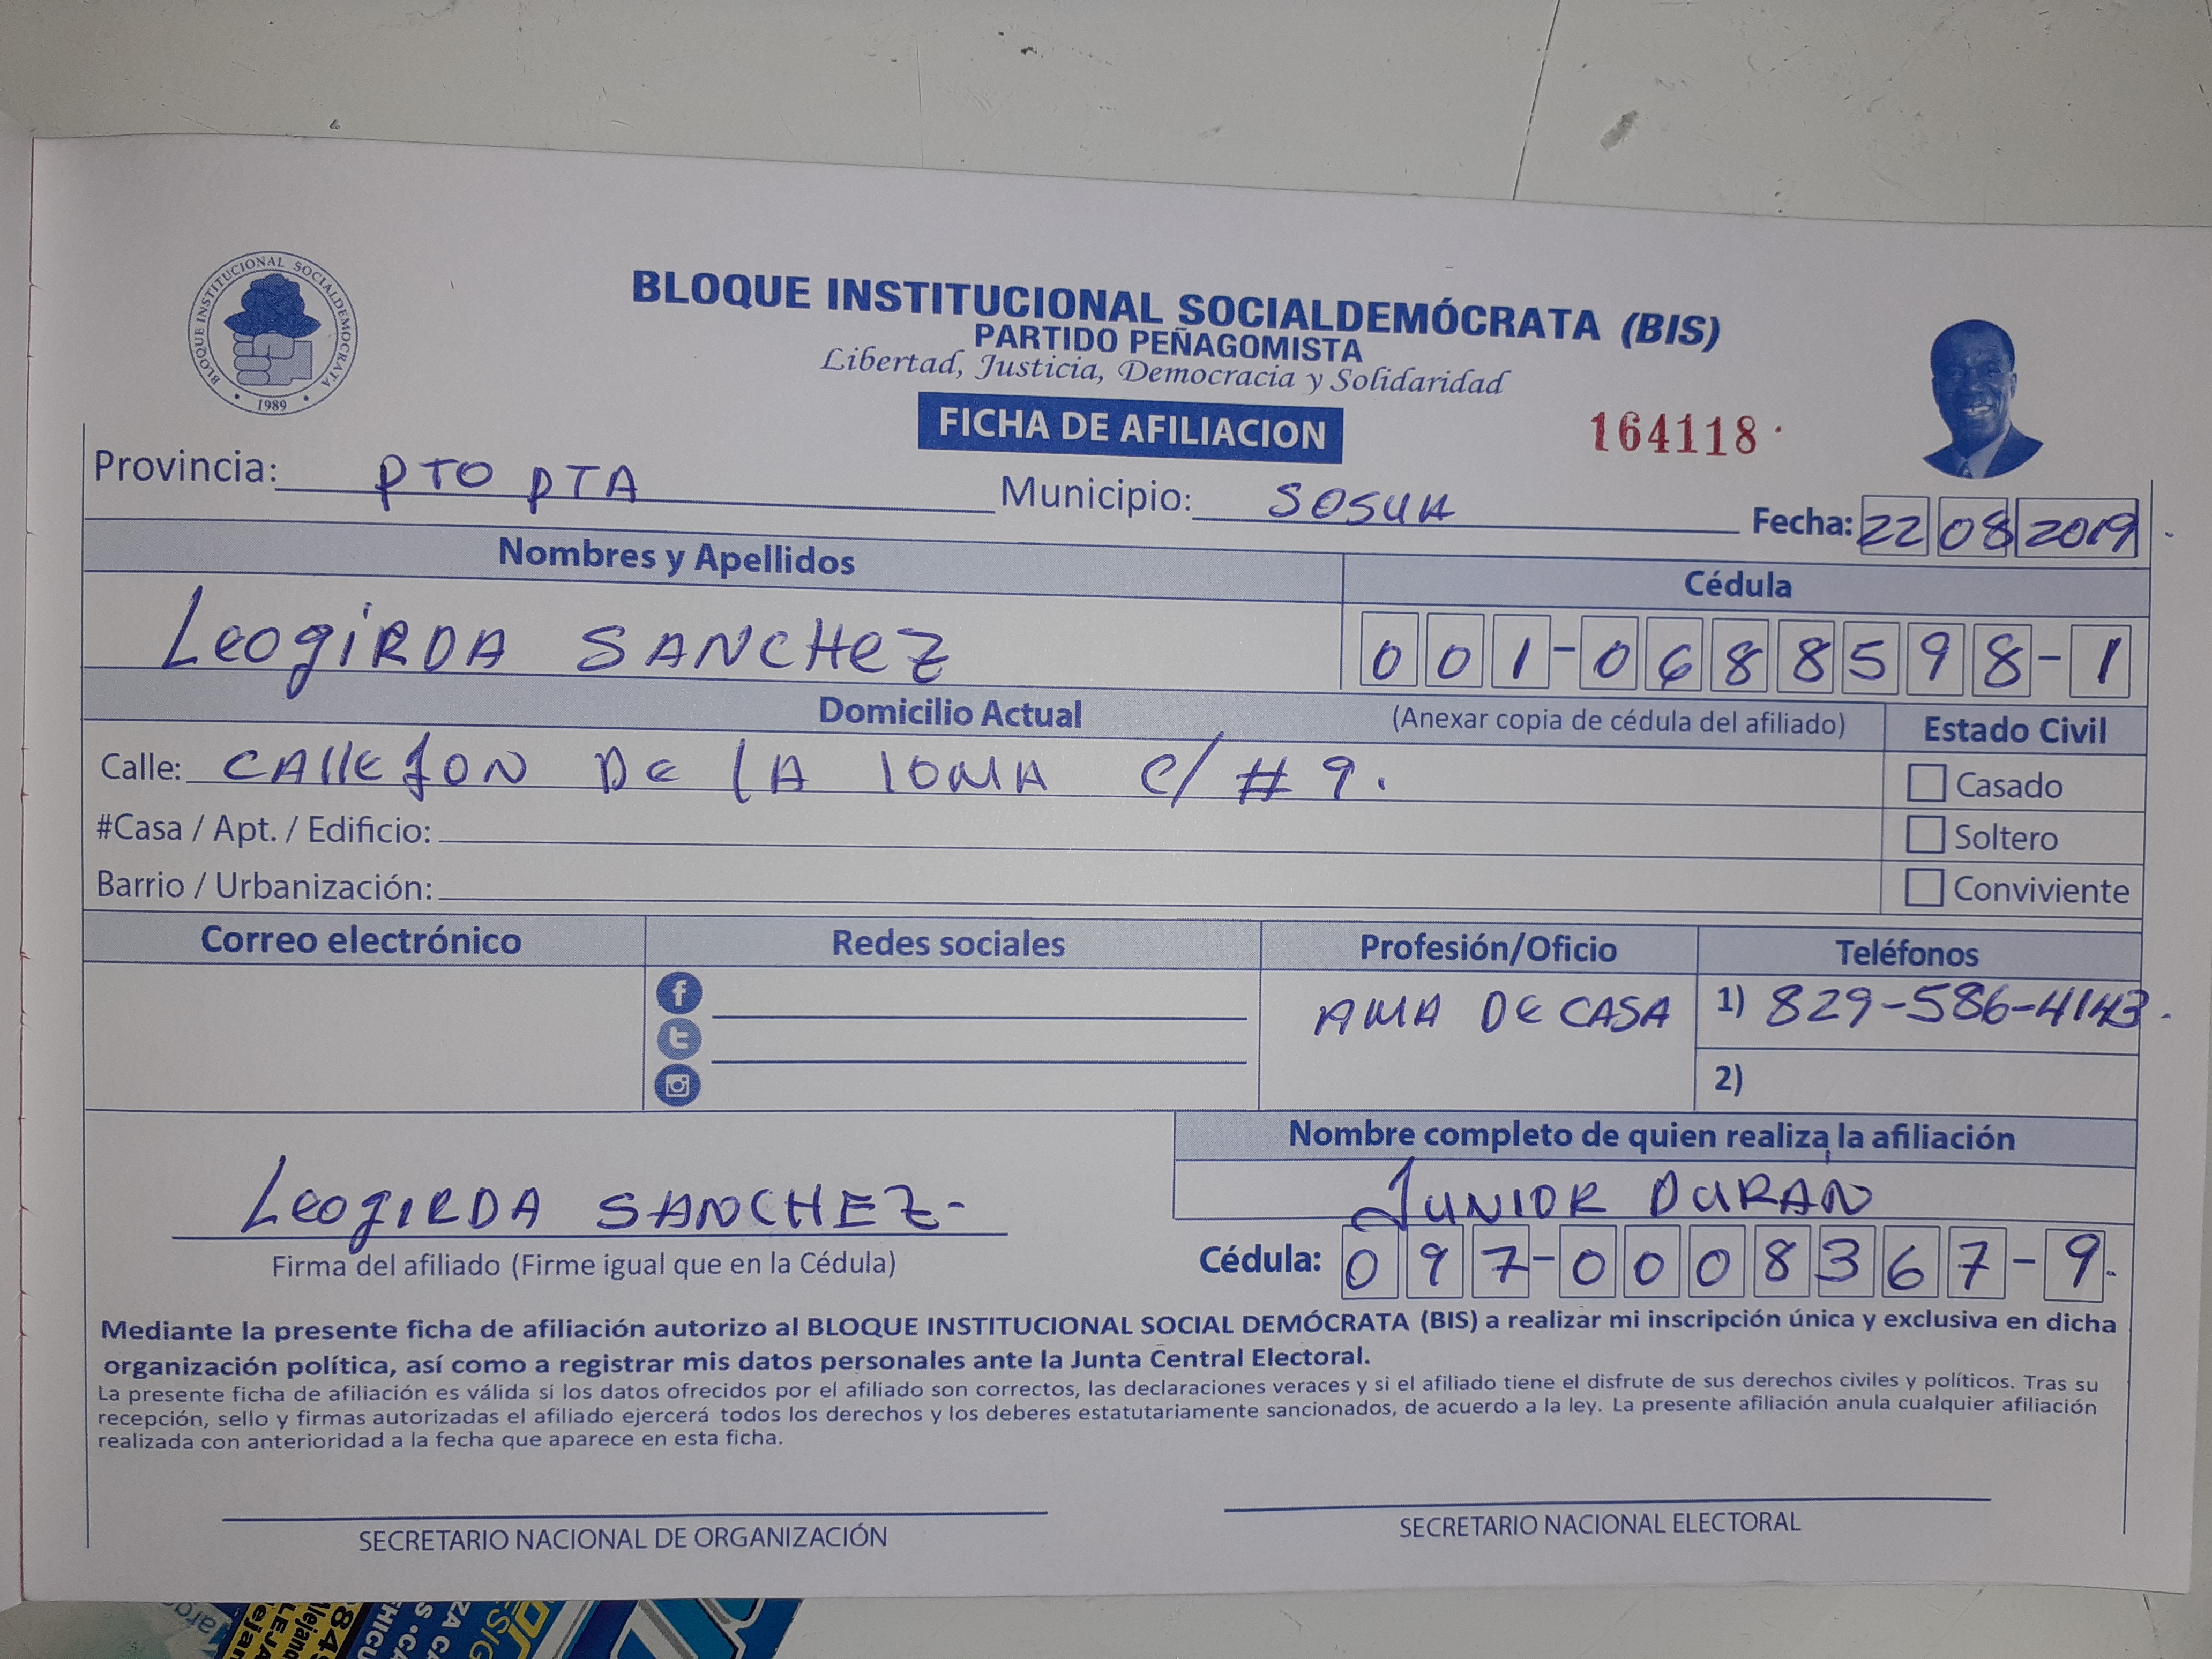 BLOQUE INSTITUCIONAL SOCIALDEMOCRATA
1989
BLOQUE INSTITUCIONAL SOCIALDEMÓCRATA (BIS)
PARTIDO PEÑAGOMISTA
Libertad, Justicia, Democracia y Solidaridad
FICHA DE AFILIACION
164118
Provincia: PTO PTA Municipio: SOSUA Fecha: 22 08 2019
Nombres y Apellidos Cédula
LeogiRDA SANCHeZ 001-0688598-1
Domicilio Actual (Anexar copia de cédula del afiliado) Estado Civil
Calle: CAllEJON DE lA lOMA C/ #9. Casado
#Casa / Apt. / Edificio: Soltero
Barrio / Urbanización: Conviviente
Correo electrónico Redes sociales Profesión/Oficio Teléfonos
AMA DE CASA 1) 829-586-4143
2)
Nombre completo de quien realiza la afiliación
LeogIRDA SANCHEZ- JUNIOR DURAN
Firma del afiliado (Firme igual que en la Cédula) Cédula: 097-0008367-9.
Mediante la presente ficha de afiliación autorizo al BLOQUE INSTITUCIONAL SOCIAL DEMÓCRATA (BIS) a realizar mi inscripción única y exclusiva en dicha
organización política, así como a registrar mis datos personales ante la Junta Central Electoral.
La presente ficha de afiliación es válida si los datos ofrecidos por el afiliado son correctos, las declaraciones veraces y si el afiliado tiene el disfrute de sus derechos civiles y políticos. Tras su
recepción, sello y firmas autorizadas el afiliado ejercerá todos los derechos y los deberes estatutariamente sancionados, de acuerdo a la ley. La presente afiliación anula cualquier afiliación
realizada con anterioridad a la fecha que aparece en esta ficha.
SECRETARIO NACIONAL DE ORGANIZACIÓN SECRETARIO NACIONAL ELECTORAL